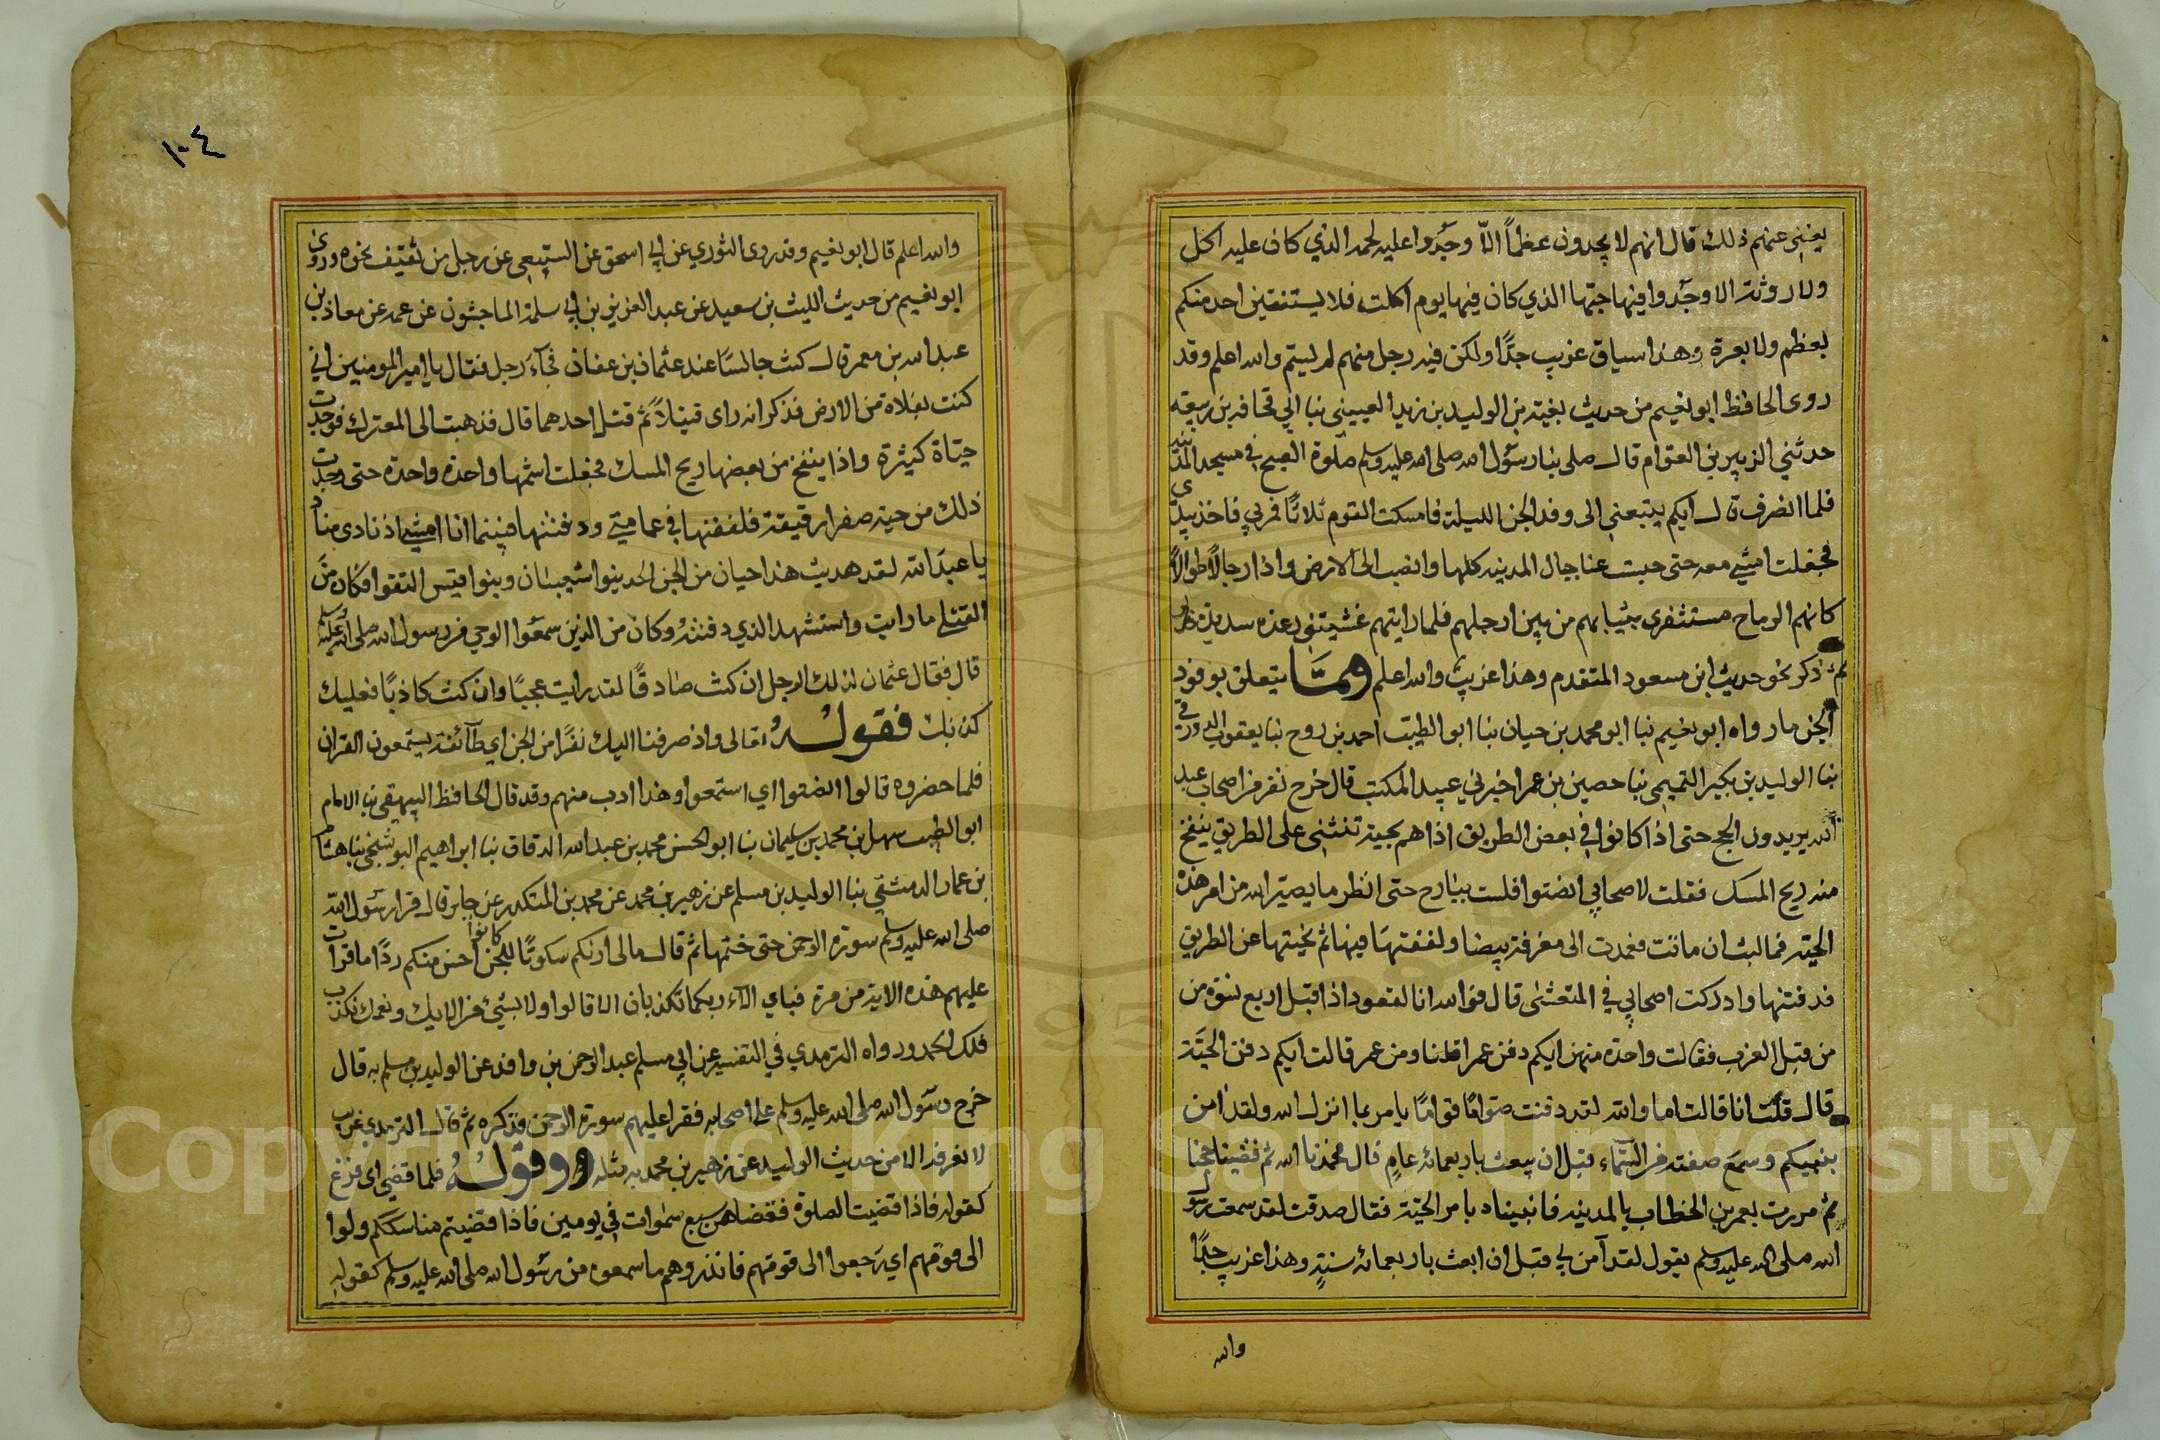 يغني عنهم ذلك قال انهم لا يجدون عظماً الّا وجدوا عليه لحمه الذي كان عليه اكل
ولا روثة الا وجدوا فيها حبّها الذي كان فيها يوم اكلت فلا يستنقين احد منكم
بعظم ولا بعرة وهذا سياق غريب جدًّا ولكن فيه رجل منهم لم يسم والله اعلم وقد
روى الحافظ ابو نعيم من حديث بقية بن الوليد بن زيد العيسي نبا ابي قحافه بن ربيعة
حدثني الزبير بن العوام قال صلى بنا رسول الله صلى الله عليه وسلم صلوة الصبح في مسجد المدينة
فلما انصرف قال ايكم يتبعني الى وفد الجن الليلة فامسكت القوم ثلاثًا فمر بي فاخذ بيدي
فجعلت امشي معه حتى حبست عنا جبال المدينه كلها وافضت الى الارض واذا رجالاً طوالاً
كانهم الرماح مستثفرى بثيابهم من بين ارجلهم فلما رايتهم غشيتني رعده شديدة
ثم ذكر نحو حديث ابن مسعود المتقدم وهذا غريب والله اعلم ومما يتعلق بوفود
الجن ما رواه ابو نعيم نبا ابو محمد بن حيان نبا ابو الطيب احمد بن روح نبا يعقوب الدورقي
نبا الوليد بن بكير التميمي نبا حصين بن عمر اخبرني عبيد المكتب قال خرج نفر من اصحاب عبد
الله يريدون الحج حتى اذا كانوا في بعض الطريق اذا هم بحية تنثني على الطريق ينفخ
منه ريح المسك فقلت لاصحابي انضتوا فلست ببارح حتى انظر ما يصير الله من امر هذه
الحية فما لبث ان ماتت فعمدت الى مغرفة بيضا ولففتها فيها ثم نحيتها عن الطريق
فدفنتها وادركت اصحابي في المتعشى قال فوالله انا لقعود اذا اقبل اربع نسوة من
من قبل الغرب فقالت واحدة منهن ايكم دفن عمر اقلنا ومن عمر قالت ايكم دفن الحية
قال قلت انا قالت اما والله لقد دفنت صوّامًا قوامًا يامر بما انزل الله ولقد امن
بنبيكم وسمع صفته من السمآء قبل ان يبعث باربعمائه عام قال فحمدنا الله ثم قضينا حجنا
ثم مررت بعمر بن الخطاب بالمدينه فانبيناه بامر الحية فقال صدقت لقد سمعت رسول
الله صلى الله عليه وسلم يقول لقد آمن بي قبل ان ابعث باربعمائه سنةٍ وهذا غريب جدًّا
والله
١٠٤
والله اعلم قال ابو نعيم وقد روى الثوري عن ابي اسحق عن السبيعي عن رجل من ثقيف بنحوه وروى
ابو نعيم من حديث الليث بن سعيد عن عبد العزيز بن ابي سلمة الماجشون عن عمه عن معاذ بن
عبد الله بن معمر قال كنت جالسًا عند عثمان بن عفان فجآء رجل فقال يا امير المومنين اني
كنت بفلاة من الارض فذكر انه راى قتيلاً ثم قتل احدهما قال فذهبت الى المعترك فوجدت
حيّاة كثيرة واذا ينفخ من بعضها ريح المسك فجعلت اشمها واحدة واحدة حتى وجدت
ذلك من حية صفرا رقيقة فلففتها في عمامتي ودفنتها فبينما انا امشي اذ نادى مناد
يا عبد الله لقد هديت هذا حيان من الجن احد بنوا شعيبان وبنوا قيس التقوا فكان من
القتلي ما رايت واستشهد الذي دفنته وكان من الذين سمعوا الوحي من رسول الله صلى الله عليه وسلم
قال فقال عثمان لذلك الرجل ان كنت صادقًا لقد رايت عجبًا وان كنت كاذبًا فعليك
كذبك فقوله تعالى واذ صرفنا اليك نفرًا من الجن اي طآئفة يستمعون القران
فلما حضروه قالوا انضتوا اي استمعوا وهذا ادب منهم وقد قال الحافظ البيهقي نبا الامام
ابو الطيب سهل بن محمد بن سليمان نبا ابو الحسن محمد بن عبد الله الدقاق نبا ابراهيم البوشنجي نبا هشام
بن عمار الدمشقي نبا الوليد بن مسلم عن زهير بن محمد عن محمد بن المنكدر عن جابر قال قرا رسول الله
صلى الله عليه وسلم سورة الرحمن حتى ختمها ثم قال مالى اركم سكوتًا للجن كانوا احسن منكم ردًّا ما قرات
عليهم هذه الاية من مرة فباي الآء ربكما تكذبان الا قالوا ولا بشيئ من الايك ونعمك نكذب
فلك الحمد ورواه الترمذي في التفسير عن ابي مسلم عبد الرحمن بن واقد عن الوليد بن مسلم به قال
خرج رسول الله صلى الله عليه وسلم على اصحابه فقرا عليهم سورة الرحمن فذكره ثم قال الترمذي غريب
لا نعرفه الا من حديث الوليد عن زهير بن محمد به مثله وقوله فلما قضى اى فرغ
كقوله فاذا قضيت الصلوة فقضاهن سبع سموات في يومين فاذا قضيتم مناسككم ولوا
الى قومهم اي رجعوا الى قومهم فانذروهم ما سمعوه من رسول الله صلى الله عليه وسلم كقوله
Copyright © King Saud University